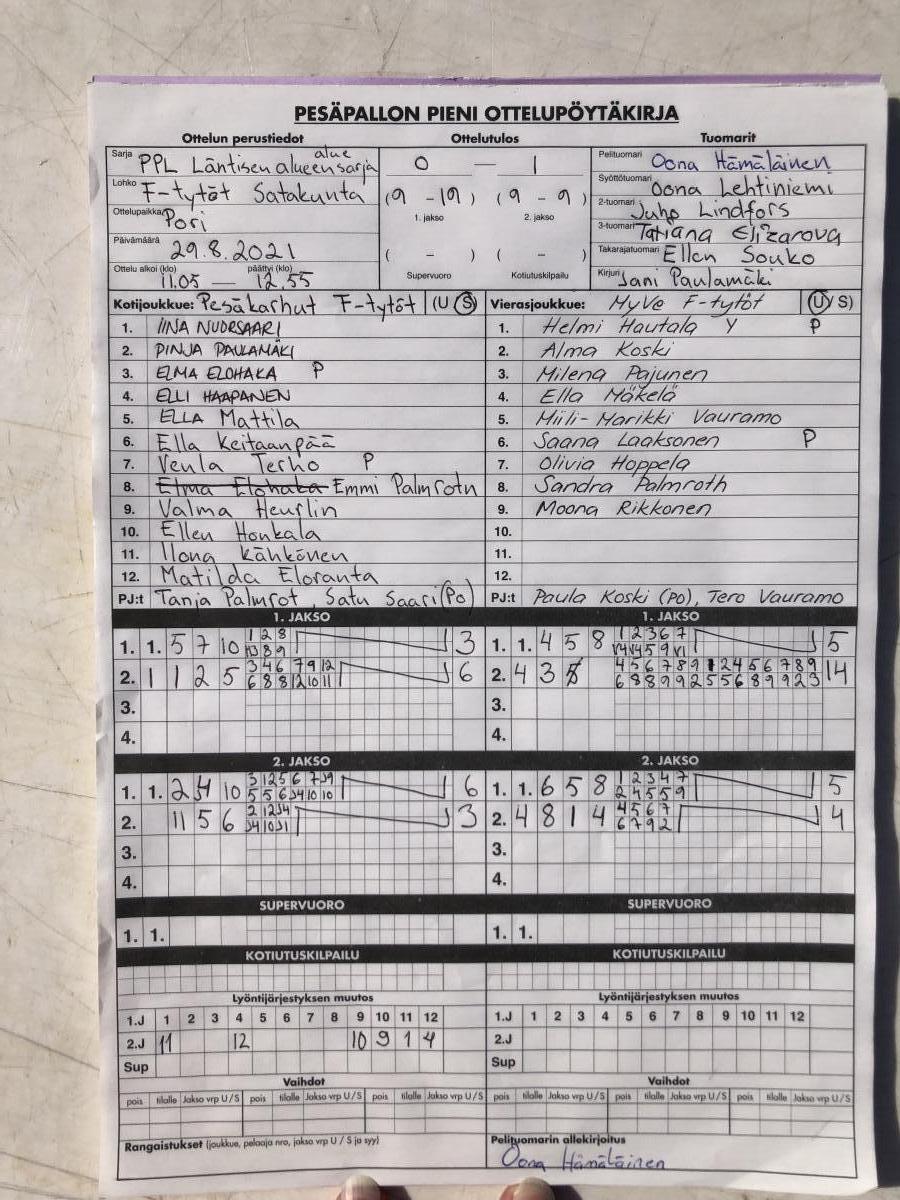 PESÄPALLON PIENI OTTELUPÖYTÄKIRJA
Ottelun perustiedot Ottelutulos Tuomarit
Sarja PPL Läntisen alueensarja alue
Lohko F-tytöt Satakunta
Ottelupaikka Pori
Päivämäärä 29.8.2021
Ottelu alkoi (klo) päättyi (klo)
11.05 — 12.55
0 — 1
(9 - 19) (9 - 9)
1. jakso 2. jakso
( - ) ( - )
Supervuoro Kotiutuskilpailu
Pelituomari Oona Hämäläinen
Syöttötuomari Oona Lehtiniemi
2-tuomari Juho Lindfors
3-tuomari Tatiana Elizarova
Takarajatuomari Ellen Souko
Kirjuri Jani Paulamäki
Kotijoukkue: Pesäkarhut F-tytöt (U S)
1. IINA NUORSAARI
2. PINJA PAULAMÄKI
3. ELMA ELOHAKA P
4. ELLI HAAPANEN
5. ELLA Mattila
6. Ella Keitaanpää
7. Venla Terho P
8. Elma Elohaka Emmi Palmroth
9. Valma Heurlin
10. Ellen Honkala
11. Ilona Kähkönen
12. Matilda Eloranta
PJ:t Tanja Palmrot, Satu Saari (Po)
Vierasjoukkue: HyVe F-tytöt (U/S)
1. Helmi Hautala Y P
2. Alma Koski
3. Milena Pajunen
4. Ella Mäkelä
5. Miili-Marikki Vauramo
6. Saana Laaksonen P
7. Olivia Hoppela
8. Sandra Palmroth
9. Moona Rikkonen
10.
11.
12.
PJ:t Paula Koski (PO), Tero Vauramo
1. JAKSO 1. JAKSO
1. 1. 5 7 10 1 2 8 3
2. 1 1 2 5 3 4 6 7 9 12 6
6 8 8 12 10 11
3.
4.
1. 1. 4 5 8 1 2 3 6 7 5
2. 4 3 4 5 6 7 8 9 1 2 4 5 6 7 8 9 14
6 8 8 9 9 2 5 5 6 8 9 9 2 3
3.
4.
2. JAKSO 2. JAKSO
1. 1. 2 4 10 6
2. 11 5 6 3
3.
4.
1. 1. 6 5 8 1 2 3 4 7 5
2 4 5 5 9
2. 4 8 1 4 4 5 6 7 4
6 7 9 2
3.
4.
SUPERVUORO SUPERVUORO
1. 1. 1. 1.
KOTIUTUSKILPAILU KOTIUTUSKILPAILU
Lyöntijärjestyksen muutos Lyöntijärjestyksen muutos
1.J 1 2 3 4 5 6 7 8 9 10 11 12 1.J 1 2 3 4 5 6 7 8 9 10 11 12
2.J 11 12 10 9 1 4 2.J
Sup Sup
Vaihdot Vaihdot
pois tilalle Jakso vrp U/S pois tilalle Jakso vrp U/S pois tilalle Jakso vrp U/S pois tilalle Jakso vrp U/S pois tilalle Jakso vrp U/S pois tilalle Jakso vrp U/S
Rangaistukset (joukkue, pelaaja nro, jakso vrp U / S ja syy) Pelituomarin allekirjoitus
Oona Hämäläinen